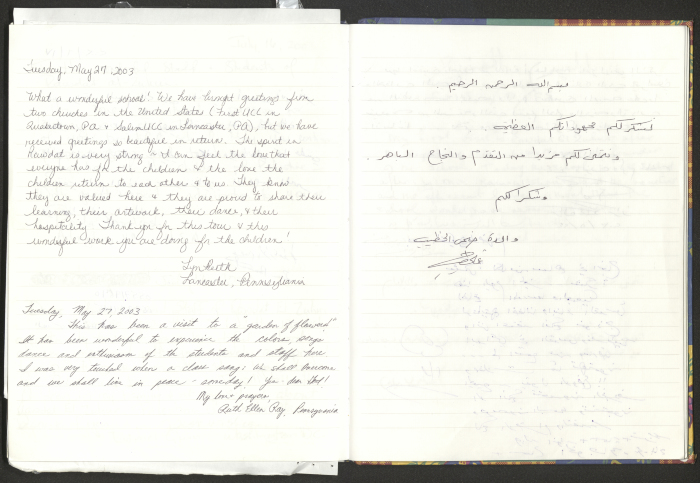 Tuesday, May 27, 2003
What a wonderful school! We have brought greetings from
two churches in the United States (First UCC in
Quakertown, PA & Salem UCC in Lancaster, PA), but we have
received greetings so beautiful in return. The spirit in
Rawdat is very strong & I can feel the love that
everyone has for the children & the love the
children return to each other & to us. They know
they are valued here & they are proud to share their
learning, their artwork, their dance, & their
hospitality. Thank you for this tour & this
wonderful work you are doing for the children!
Lyn
Lancaster, Pennsylvania
Tuesday, May 27, 2003
This has been a visit to a "garden of flowers"
It has been wonderful to experience the colors, songs
dance and enthusiasm of the students and staff here
I was very touched when a class sang: We Shall Overcome
and we shall live in peace - someday!
My love & prayers,
Ruth Ellen Pennsylvania
بسم الله الرحمن الرحيم .
نشكر لكم مجهوداتكم العظيمة .
ونتمنى لكم مزيداً من التقدم والنجاح الباهر .
وشكراً لكم
والدة الخطيب